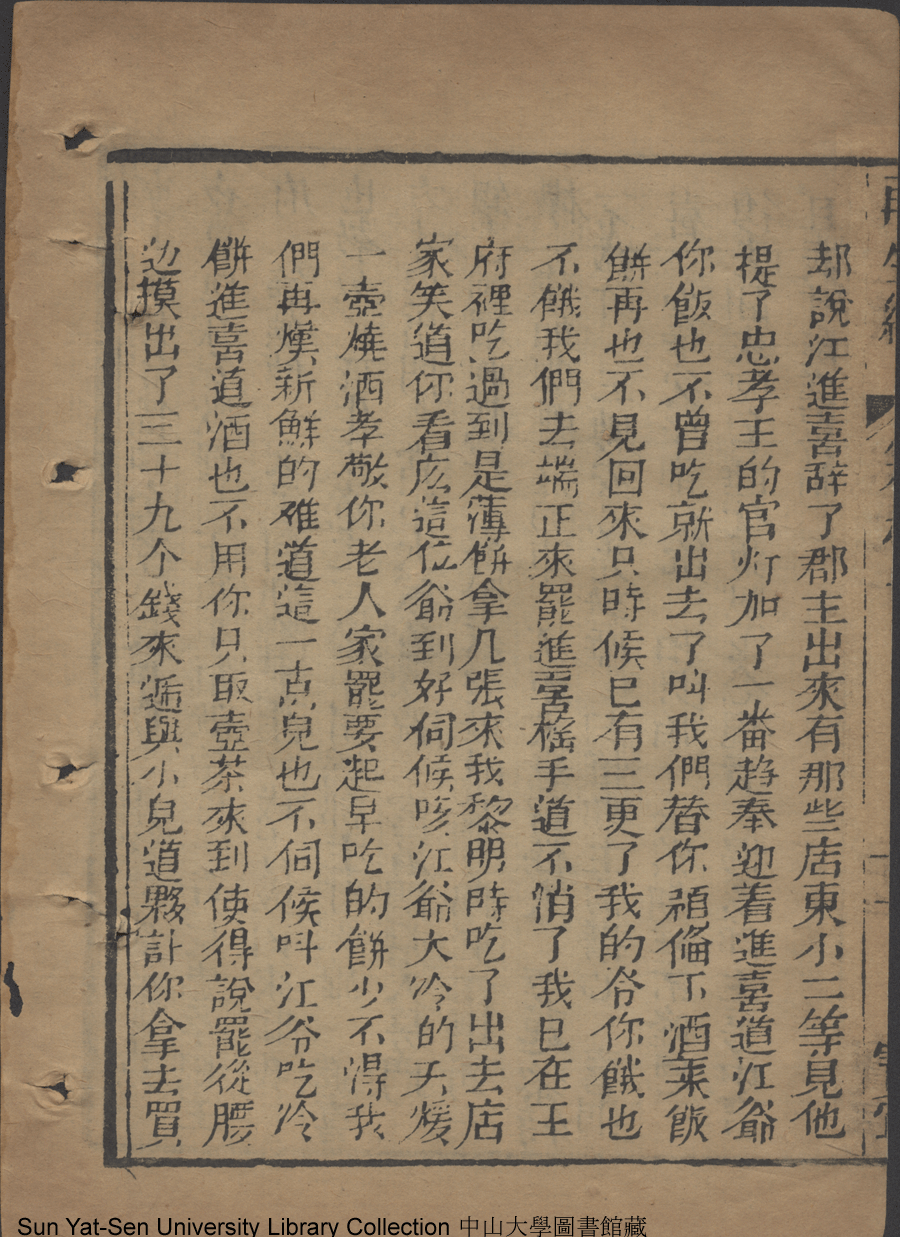 却說江進喜辞了郡主出來有那些店東小二等見他
提了忠孝王的官灯加了一番趋奉迎着進喜道江爺
你飯也不曾吃就出去了叫我們替你預偹下酒菜飯
餅再也不見回來只時候已有三更了我的爷你餓也
不餓我們去端正來罷進喜搖手道不消了我已在王
府裡吃過到是薄餅拿几張來我黎明時吃了出去店
家笑道你看庅這位爺到好伺候咳江爺大冷的天煖
一壺燒酒孝敬你老人家罷要起早吃的餅少不得我
們再煤新鮮的难道這一点兒也不伺候呌江爷吃冷
餅進喜道酒也不用你只取壺茶來到使得說罷從腰
边摸出了三十九个錢來逓與小兒道夥計你拿去買
再生緣